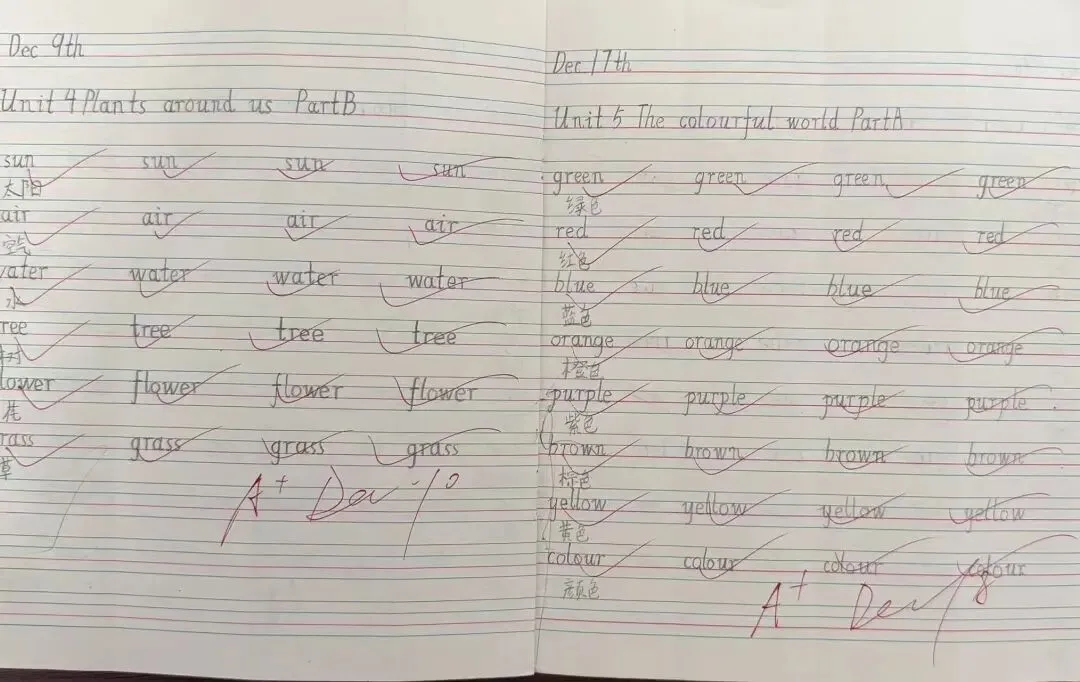 Dec 9th
Unit 4 Plants around us Part B
sun sun sun sun
太阳
air air air air
空气
water water water water
水
ree tree tree tree
树
lower flower flower flower
花
rass grass grass grass
草
A+ Dec. 10
Dec 17th
Unit 5 The colourful world Part A
green green green green
绿色
red red red red
红色
blue blue blue blue
蓝色
orange orange orange orange
橙色
purple purple purple purple
紫色
brown brown brown brown
棕色
yellow yellow yellow yellow
黄色
colour colour colour colour
颜色
A+ Dec 18